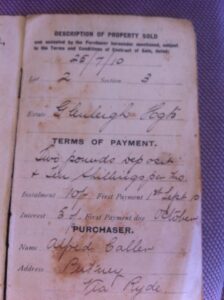 DESCRIPTION OF PROPERTY SOLD
and executed by the Purchaser hereunder mentioned, subject
to the Terms and Conditions of Contract of Sale, dated
25/7/10
Lot 2 Section 3
Estate Glenleigh Hgts
TERMS OF PAYMENT.
Two pounds deposit
& Ten Shillings per Mo.
Instalment 10/- First Payment 1st Sept 10
Interest First Payment day October
PURCHASER.
Name Alfred Callen
Address Putney
Via Ryde